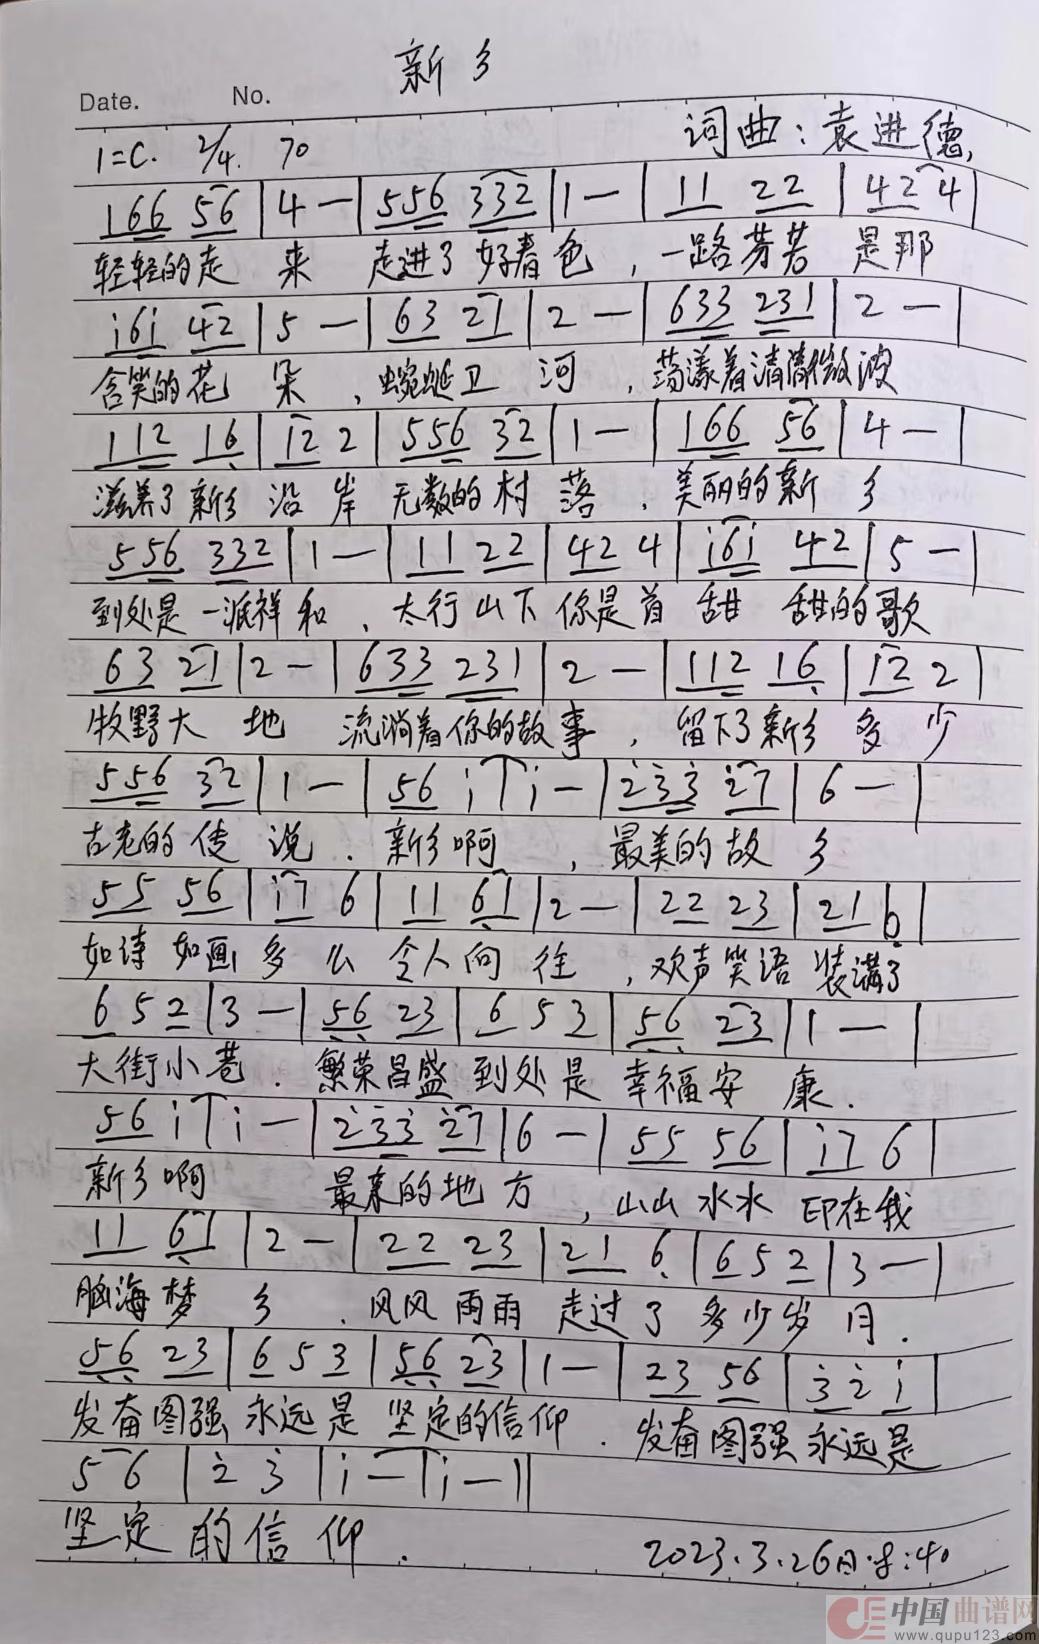 新乡
Date. No.
词曲：袁进德
1=C. 2/4. 70
166 56 | 4 — | 556 332 | 1 — | 11 22 | 42 4 |
轻轻的走 来 走进了好春色，一路芬芳 是那
i6i 42 | 5 — | 63 21 | 2 — | 633 231 | 2 — |
含笑的花 朵，蜿蜒卫 河，荡漾着清澈微波
112 16 | 12 2 | 556 32 | 1 — | 166 56 | 4 — |
滋养了新乡 沿 岸 无数的村 落，美丽的新 乡
556 332 | 1 — | 11 22 | 42 4 | i6i 42 | 5 — |
到处是一派祥和，太行山下你是首 甜 甜的歌
63 21 | 2 — | 633 231 | 2 — | 112 16 | 12 2 |
牧野大 地 流淌着你的故事，留下了新乡 多 少
556 32 | 1 — | 56 i | i — | 233 27 | 6 — |
古老的传 说．新乡啊，最美的故 乡
55 56 | i7 6 | 11 61 | 2 — | 22 23 | 21 6 |
如诗 如画 多 么 令人向 往，欢声笑语 装满了
6 5 2 | 3 — | 56 23 | 6 5 3 | 56 23 | 1 — |
大街小巷．繁荣昌盛 到处是 幸福安 康．
56 i | i — | 233 27 | 6 — | 55 56 | i7 6 |
新乡啊 最亲的地 方，山山水水 印在我
11 61 | 2 — | 22 23 | 21 6 | 6 5 2 | 3 — |
脑海梦 乡．风风雨雨 走过了 多少岁 月．
56 23 | 6 5 3 | 56 23 | 1 — | 23 56 | 3 2 i |
发奋图强 永远是 坚定的信仰．发奋图强永远是
5 6 | 2 3 | i — | i — ||
坚定 的 信 仰．
2023.3.26日.8:40
中国曲谱网
www.qupu123.com